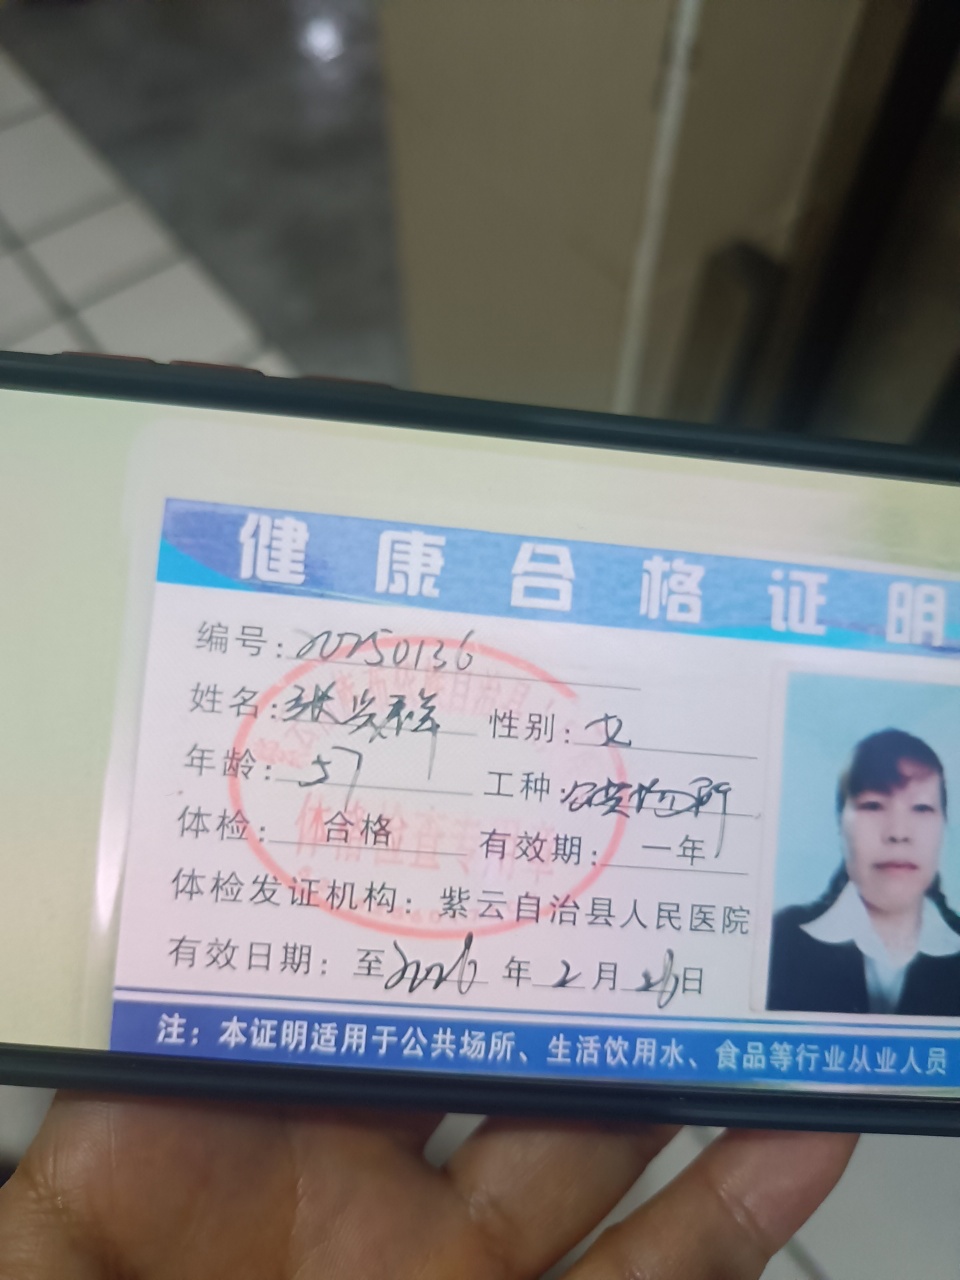 健康合格证明
编号：20250136
姓名：张兴 性别：女
年龄：57 工种：公共场所
体检：合格 有效期：一年
体检发证机构：紫云自治县人民医院
有效日期：至2026年2月26日
注：本证明适用于公共场所、生活饮用水、食品等行业从业人员